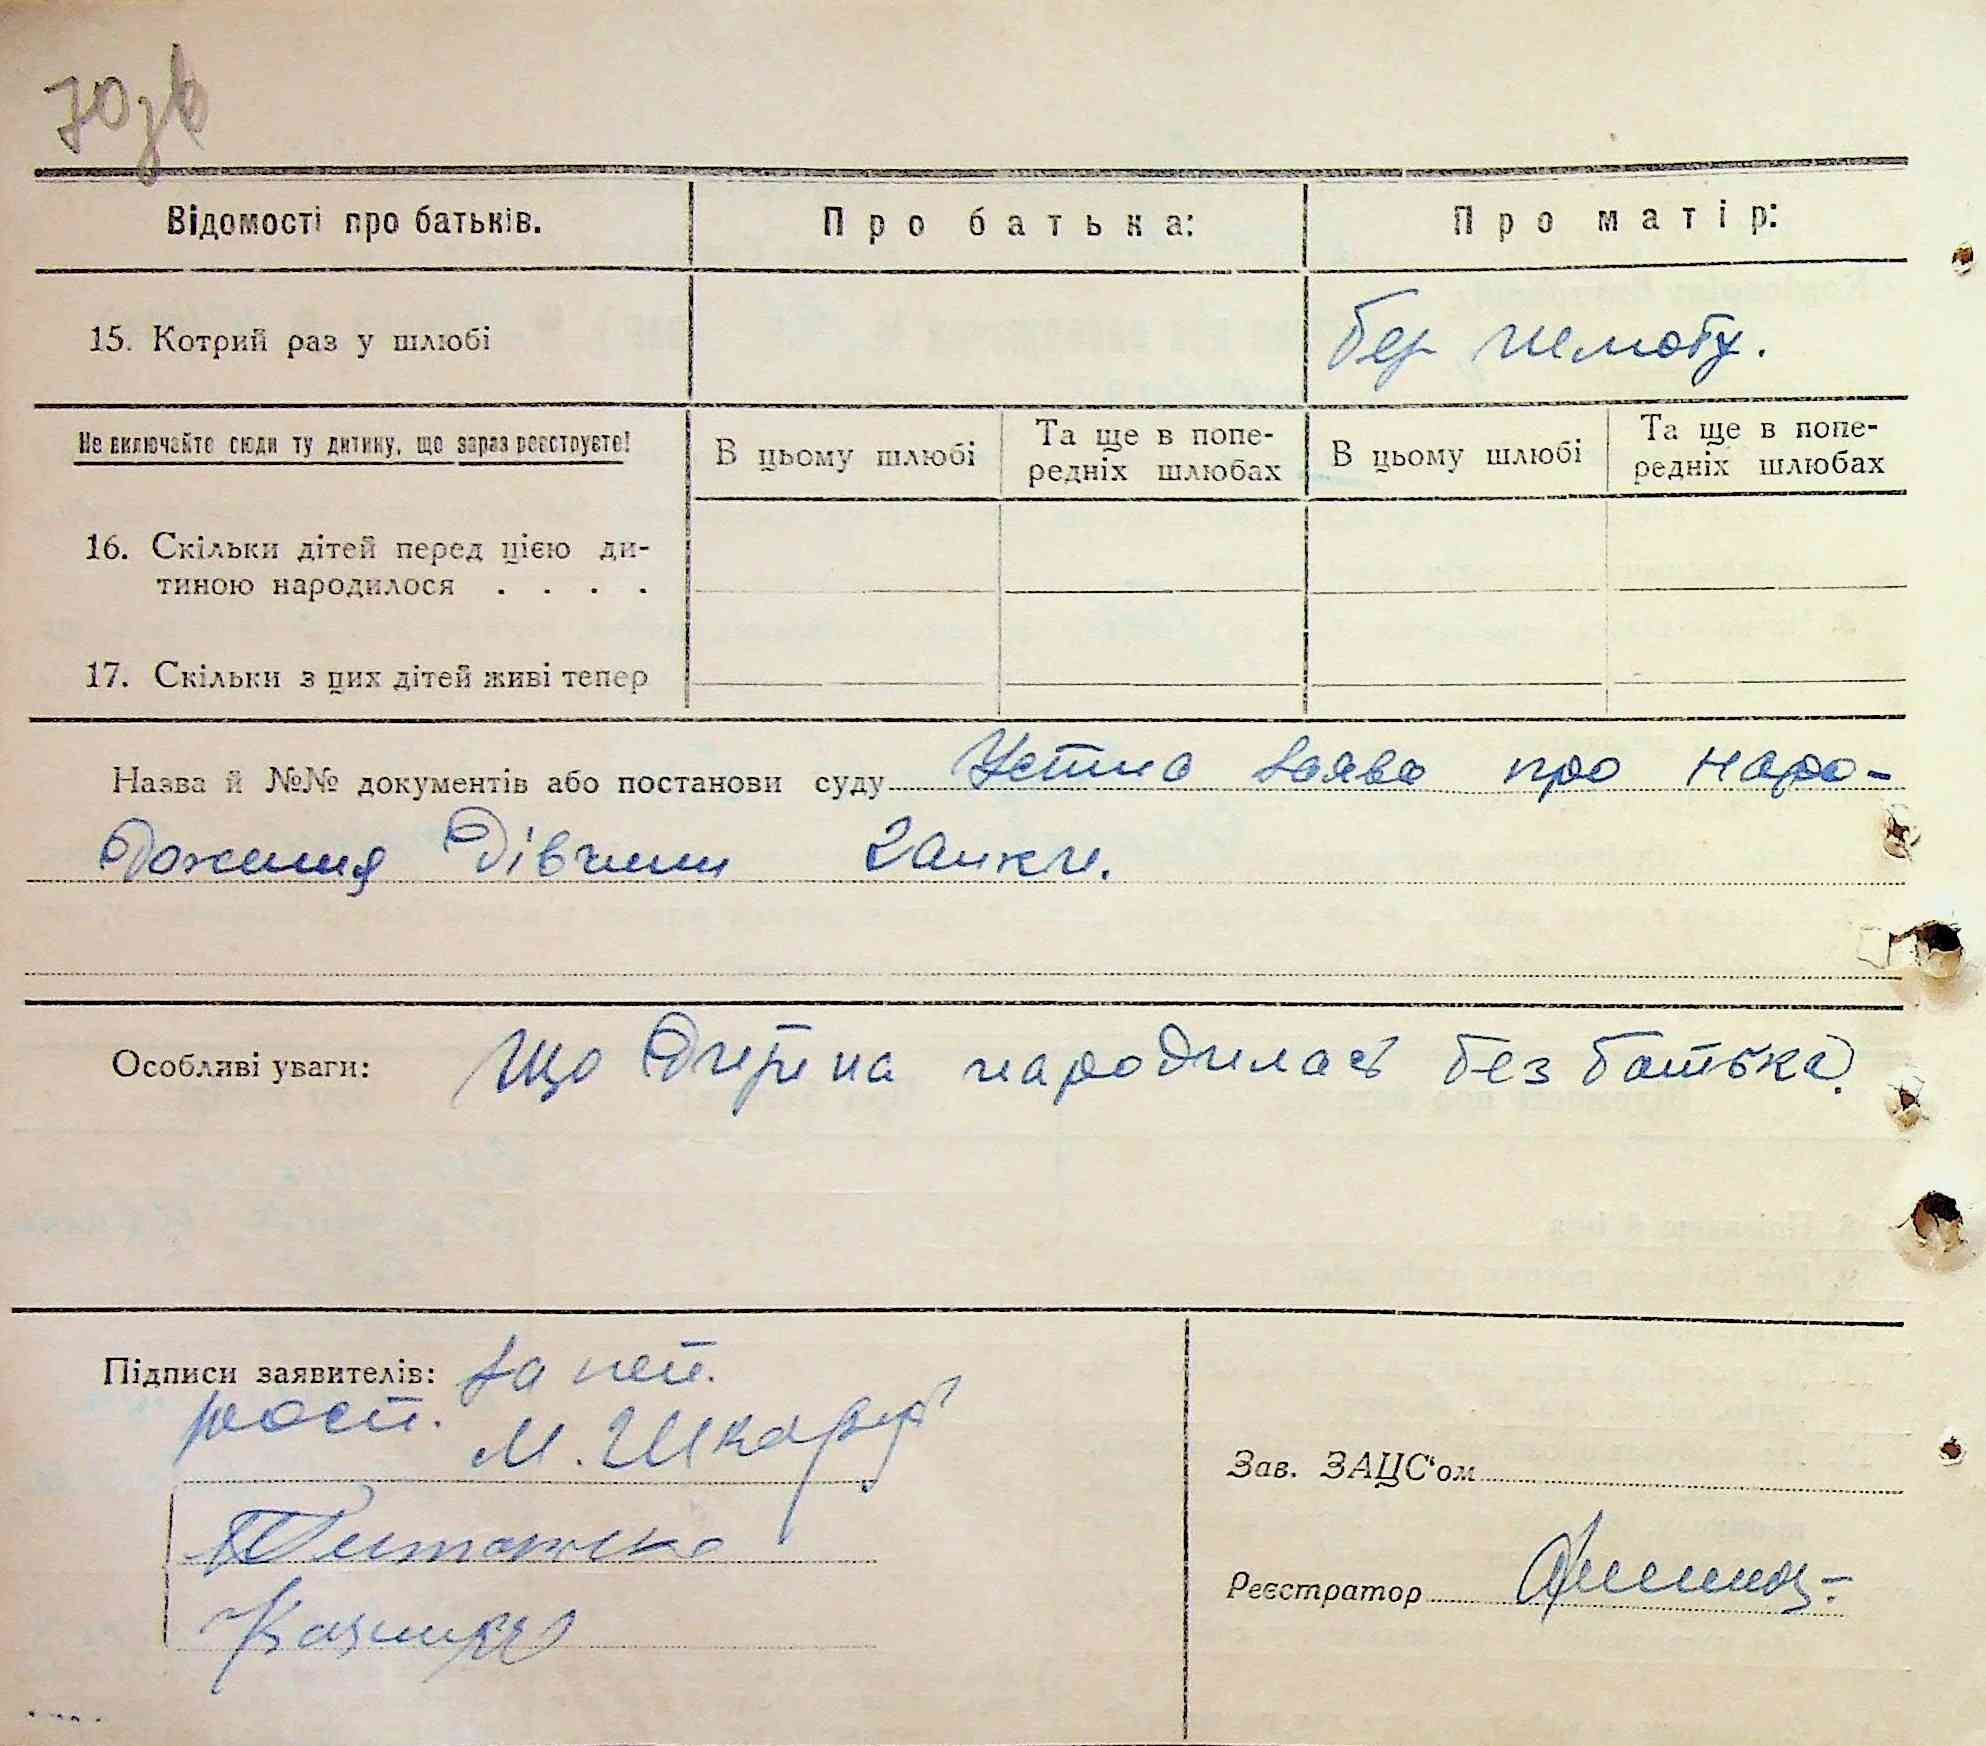 70зв
Відомості про батьків. Про батька: Про матір:
15. Котрий раз у шлюбі без шлюбу.
Не включайте сюди ту дитину, що зараз реєструєте!
В цьому шлюбі Та ще в попе- В цьому шлюбі Та ще в попе-
редніх шлюбах редніх шлюбах
16. Скільки дітей перед цією ди-
тиною народилося . . . .
17. Скільки з цих дітей живі тепер
Назва й №№ документів або постанови суду Устна заява про наро-
дження дівчини Ганки.
Особливі уваги: Що дитина народилась без батька.
Підписи заявителів: За неп.
розп. М. Шкарф
Зав. ЗАЦС'ом
Реєстратор